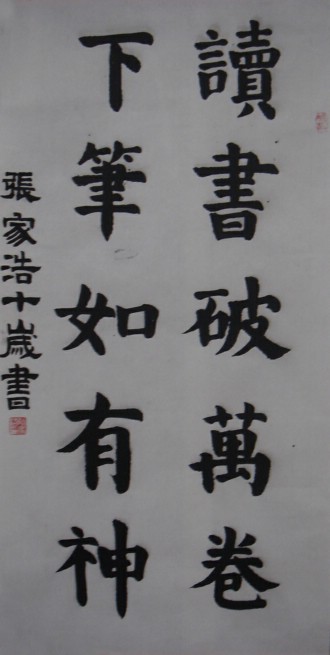 讀書破萬卷
下筆如有神
張家浩十歲書